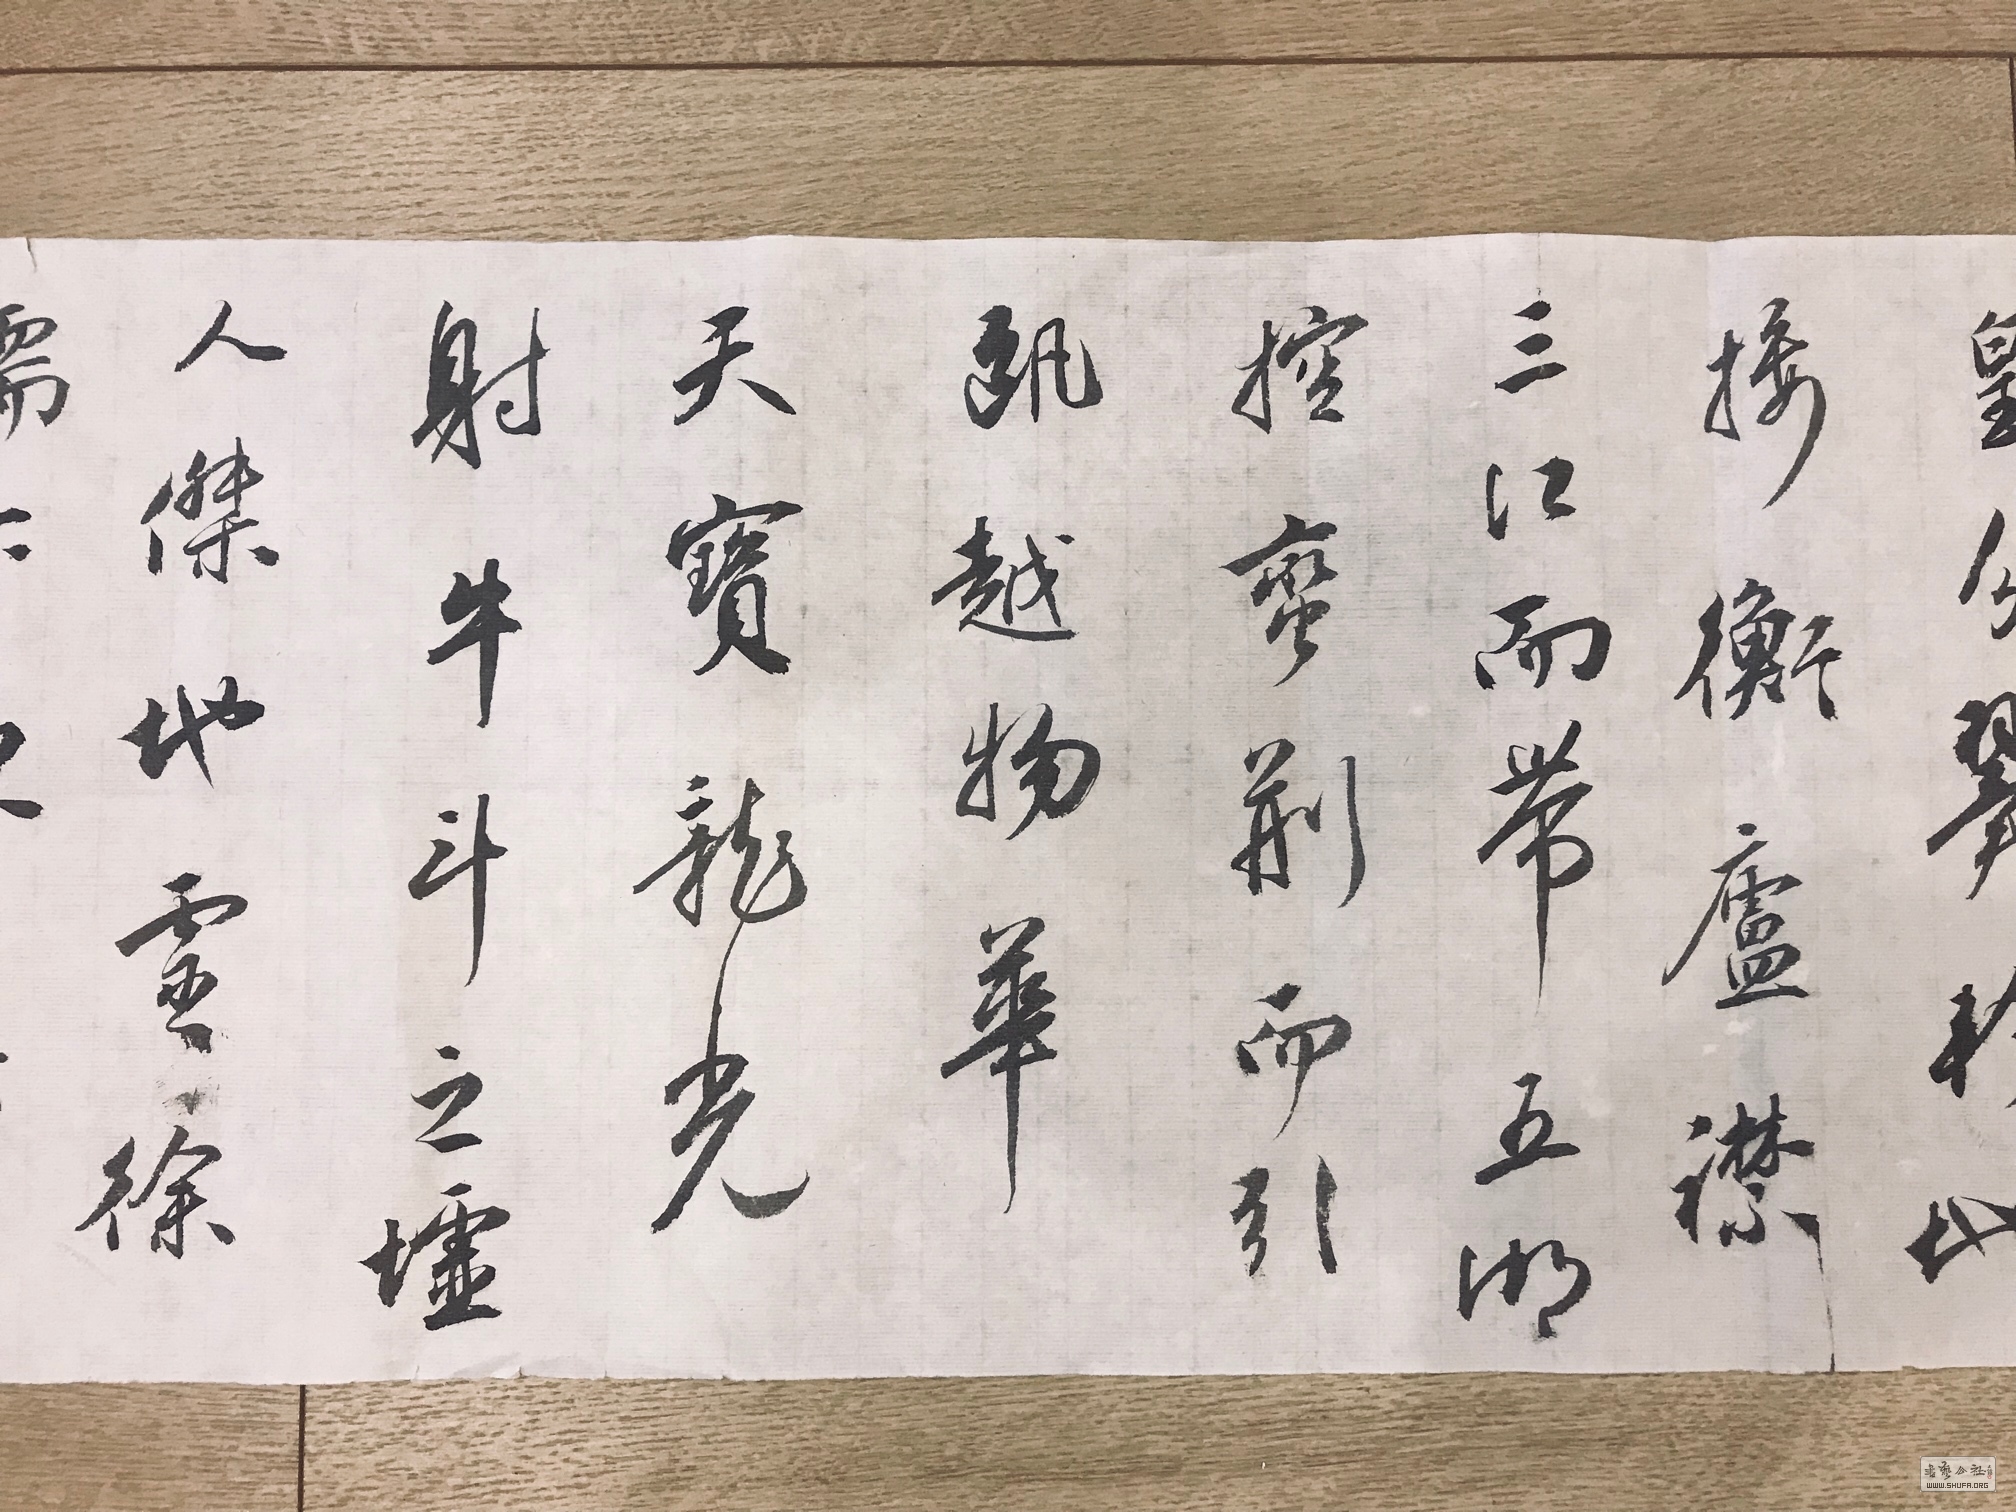 皇分翼軫地
接衡廬襟
三江而帶五湖
控蠻荊而引
甌越物華
天寶龍光
射牛斗之墟
人傑地靈徐
孺下
WWW.SHUFA.ORG